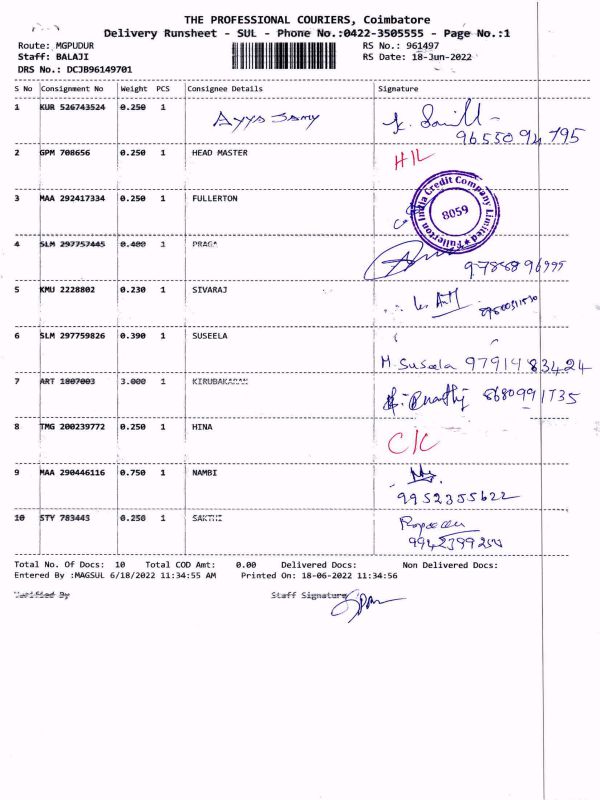 THE PROFESSIONAL COURIERS, Coimbatore
Delivery Runsheet - SUL - Phone No.:0422-3505555 - Page No.:1
Route: MGPUDUR RS No.: 961497
Staff: BALAJI RS Date: 18-Jun-2022
DRS No.: DCJB96149701
S No Consignment No Weight PCS Consignee Details Signature
1 KUR 526743524 0.250 1 Ayya Samy
9655094795
2 GPM 708656 0.250 1 HEAD MASTER H/L
3 MAA 292417334 0.250 1 FULLERTON
Fullerton India Credit Company Limited
8059
4 SLM 297757445 0.400 1 PRAGA
5 KMU 2228802 0.230 1 SIVARAJ
6 SLM 297759826 0.390 1 SUSEELA
M. Suseela 9791483424
7 ART 1807003 3.000 1 KIRUBAKARAN
8680991735
8 TMG 200239772 0.250 1 HINA C/C
9 MAA 290446116 0.750 1 NAMBI
9952355622
10 STY 783443 0.250 1 SAKTHI
Total No. Of Docs: 10 Total COD Amt: 0.00 Delivered Docs: Non Delivered Docs:
Entered By :MAGSUL 6/18/2022 11:34:55 AM Printed On: 18-06-2022 11:34:56
Verified By Staff Signature